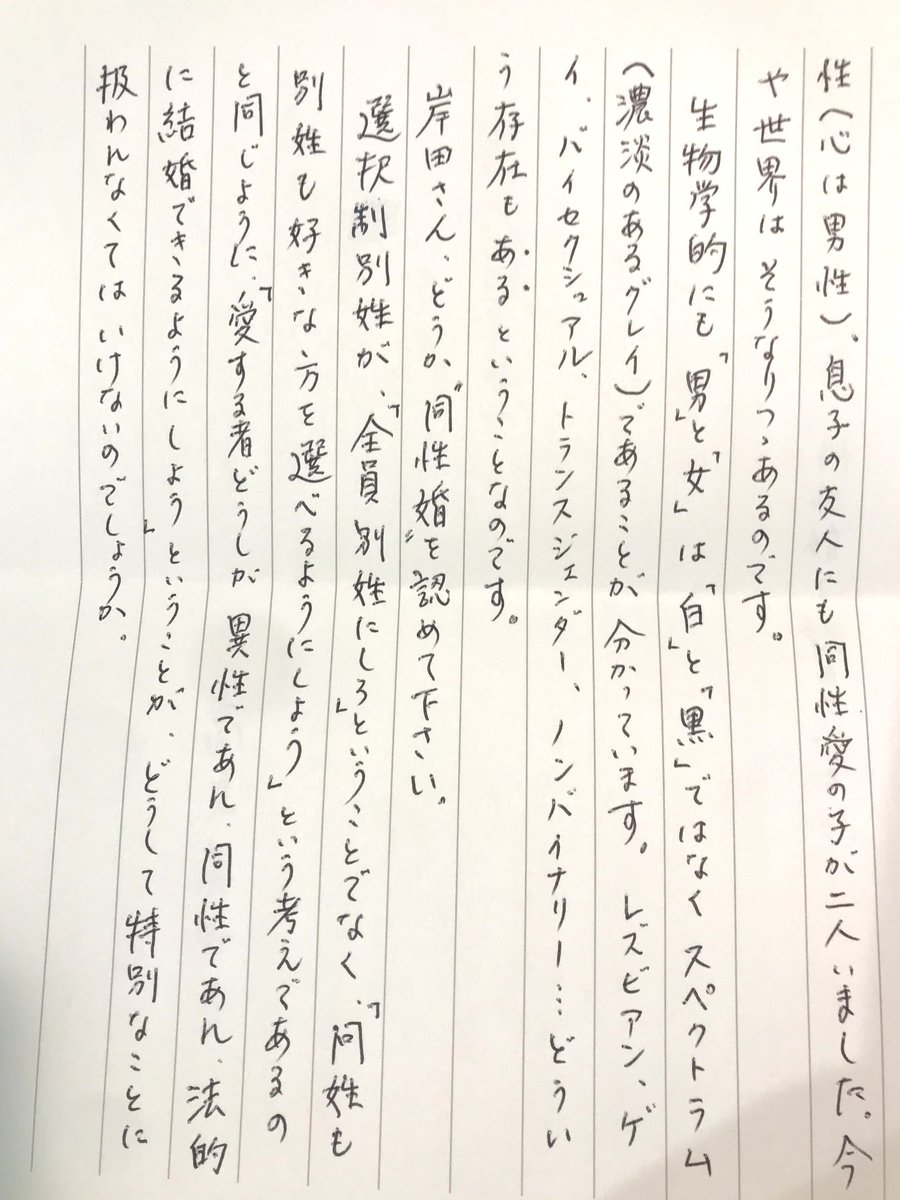 性（心は男性）、息子の友人にも同性愛の子が二人いました。今
や世界はそうなりつゝあるのです。
生物学的にも「男」と「女」は「白」と「黒」ではなくスペクトラム
（濃淡のあるグレイ）であることが分かっています。レズビアン、ゲ
イ、バイセクシュアル、トランスジェンダー、ノンバイナリー…どうい
う存在もあるということなのです。
岸田さん、どうか〝同性婚〟を認めて下さい。
選択制別姓が、「全員別姓にしろ」ということでなく、「同姓も
別姓も好きな方を選べるようにしよう」という考えであるの
と同じように、「愛する者どうしが異性であれ、同性であれ、法的
に結婚できるようにしよう」ということが、どうして特別なことに
扱われなくてはいけないのでしょうか。